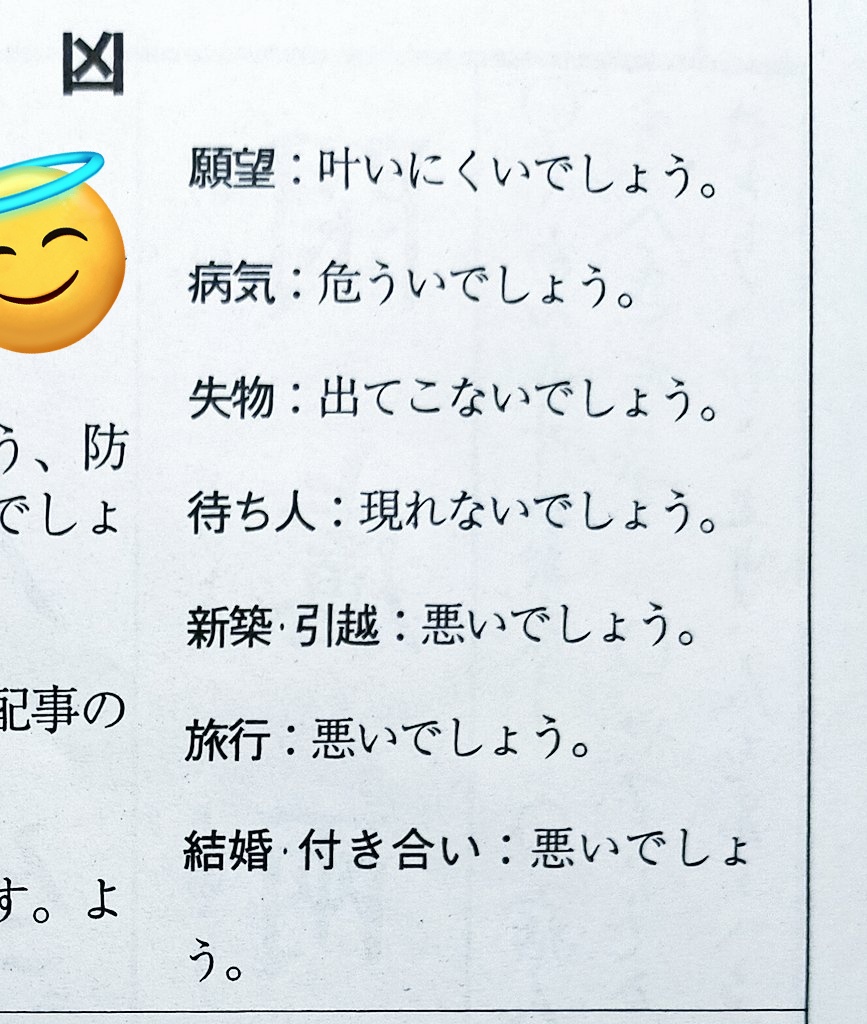 凶
う、防
でしょ
配事の
す。よ
願望：叶いにくいでしょう。
病気：危ういでしょう。
失物：出てこないでしょう。
待ち人：現れないでしょう。
新築·引越：悪いでしょう。
旅行：悪いでしょう。
結婚·付き合い：悪いでしょ
う。